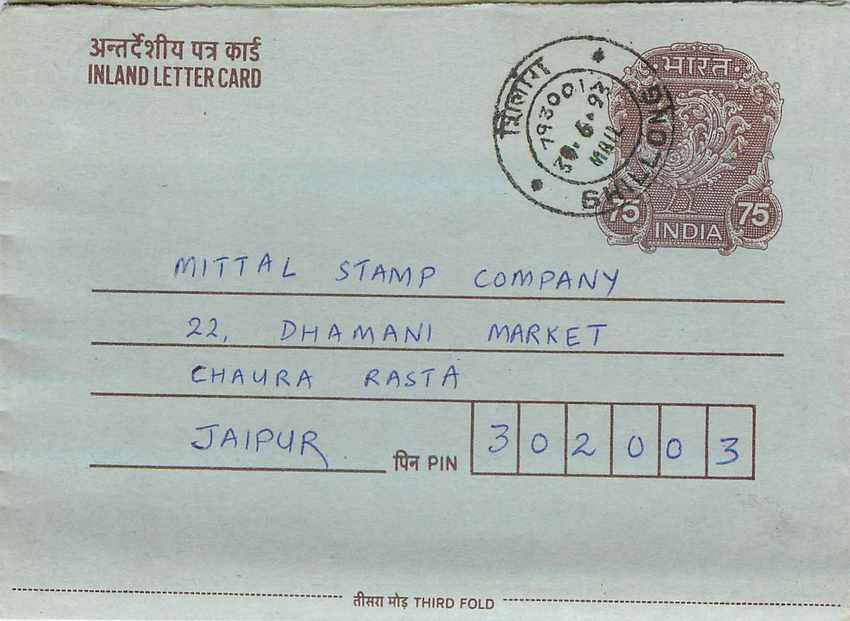 अन्तर्देशीय पत्र कार्ड
INLAND LETTER CARD
शिलांग
SHILLONG
793001
30.6.93
MAIL
भारत
75 75
INDIA
MITTAL STAMP COMPANY
22, DHAMANI MARKET
CHAURA RASTA
JAIPUR पिन PIN 302003
तीसरा मोड़ THIRD FOLD